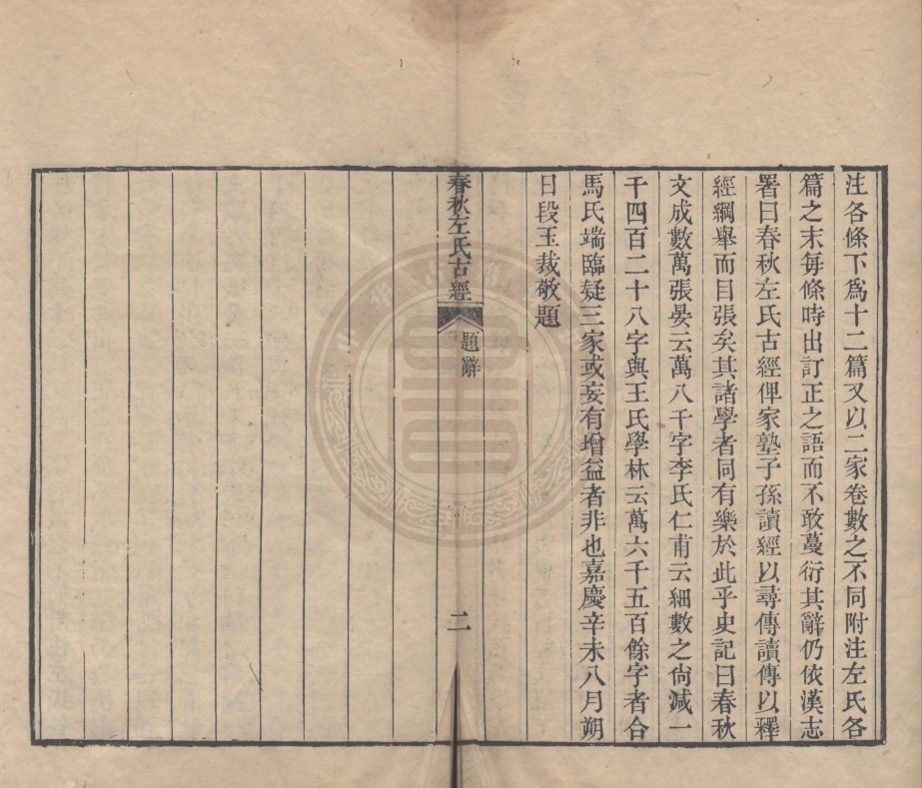 注各條下爲十二篇又以二家卷數之不同附注左氏各
篇之末每條時出訂正之語而不敢蔓衍其辭仍依漢志
署曰春秋左氏古經俾家塾子孫讀經以尋傳讀傳以釋
經綱舉而目張矣其諸學者同有樂於此乎史記曰春秋
文成數萬張晏云萬八千字李氏仁甫云細數之尙減一
千四百二十八字與王氏學林云萬六千五百餘字者合
馬氏端臨疑三家或妄有增益者非也嘉慶辛未八月朔
日段玉裁敬題
春秋左氏古經 題辭 二